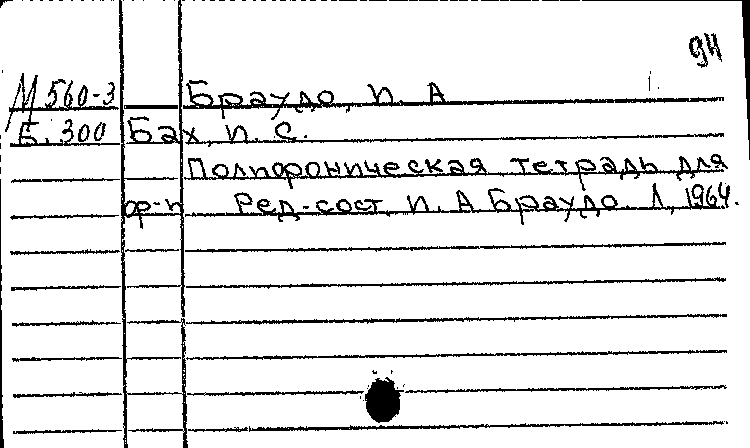 94
М 560-3 Браудо, И. А
Б. 300 Бах, И. С.
Полифоническая тетрадь для
ф-п Ред.-сост. И. А Браудо. Л, 1964.